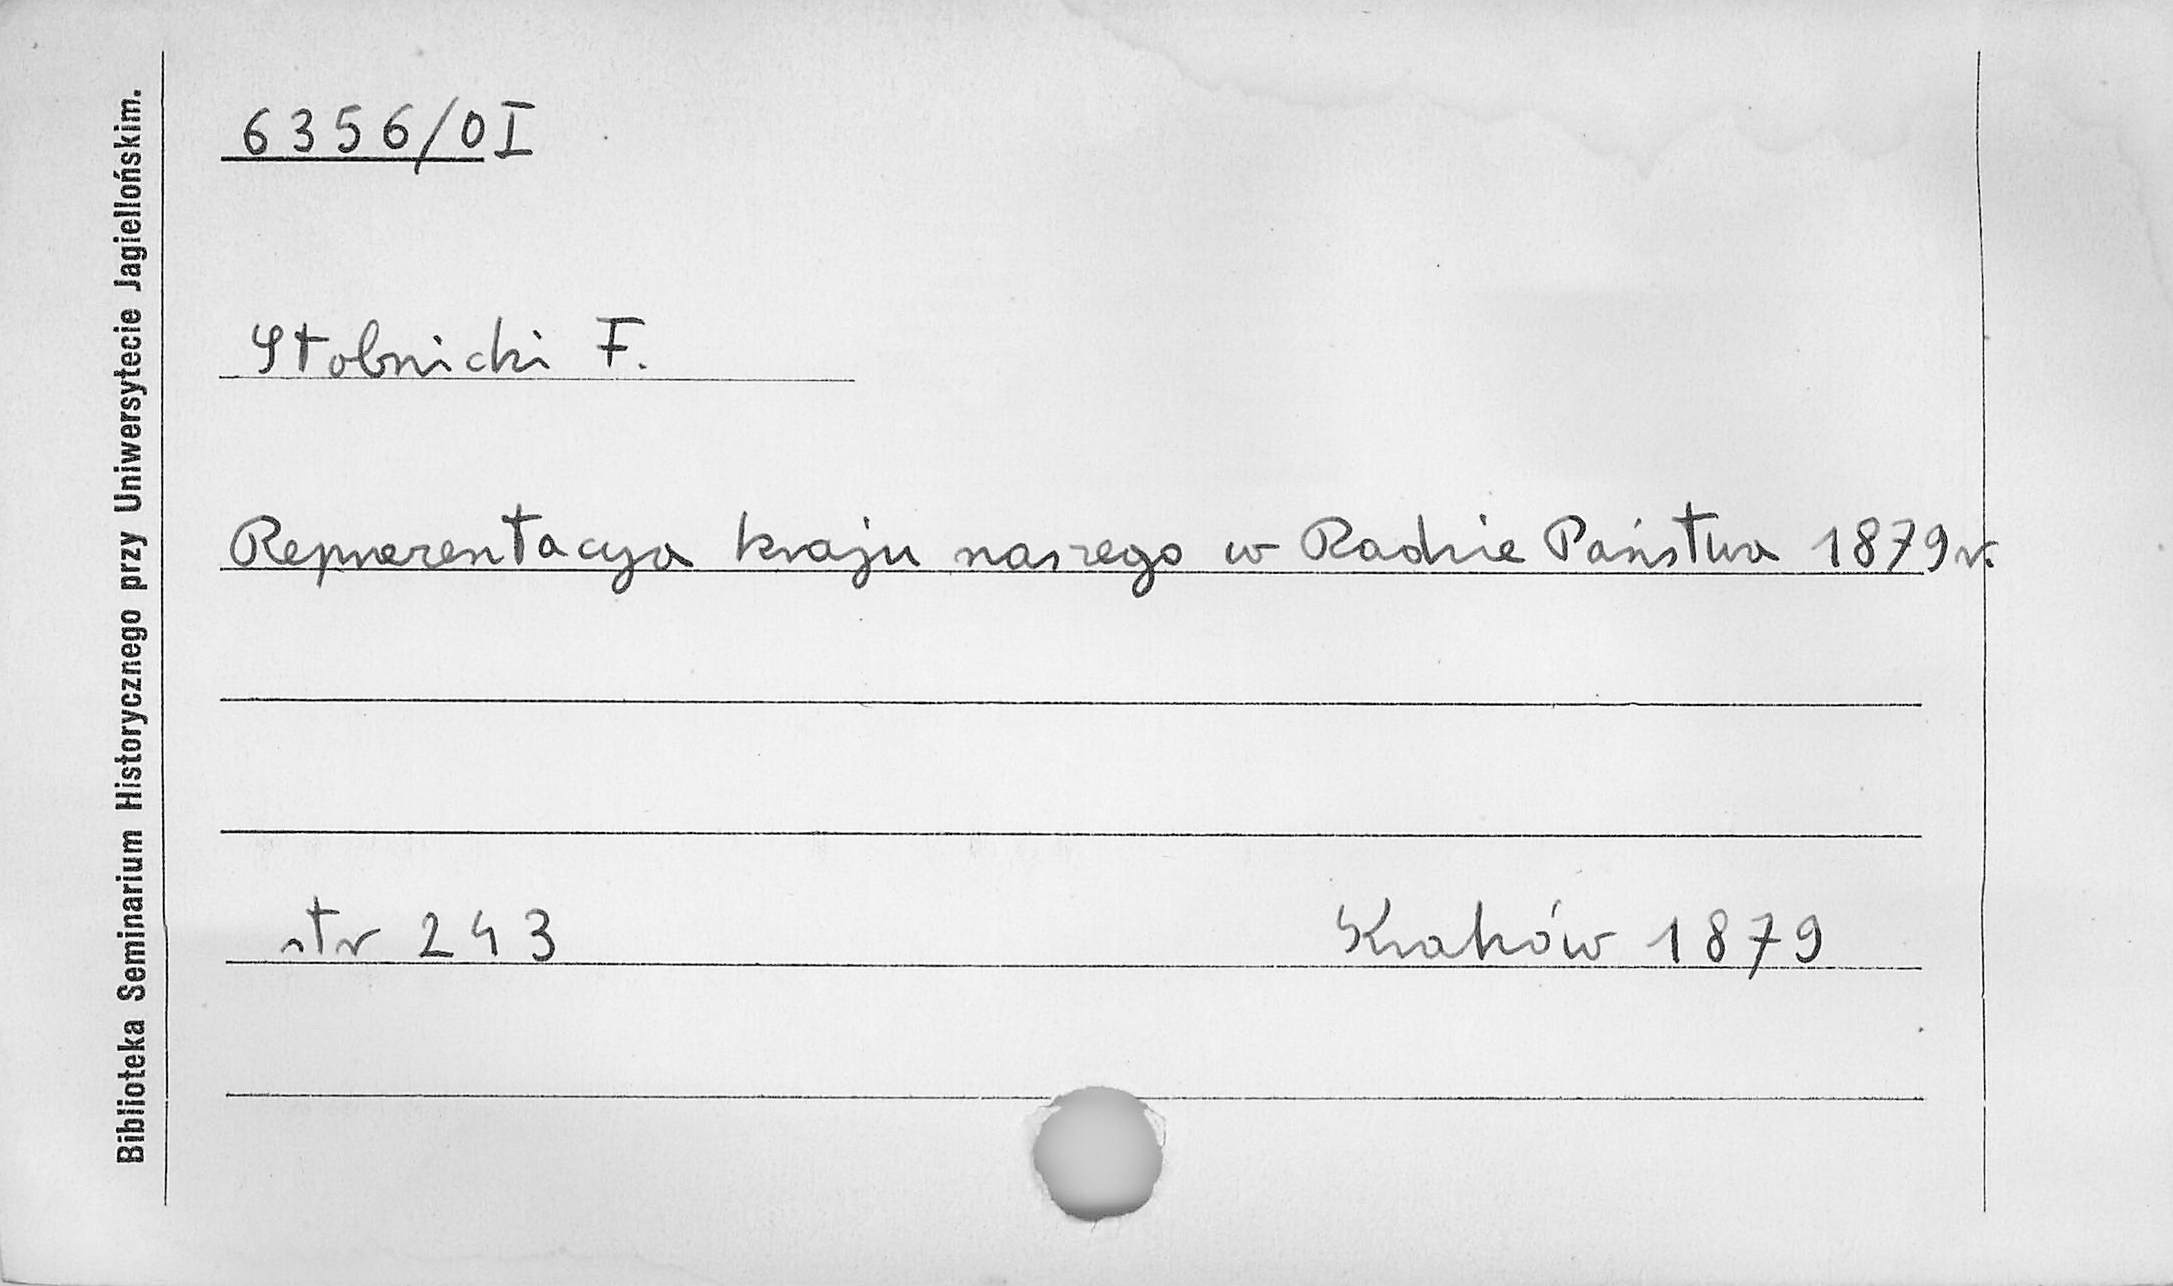 6356/0I
Stobnicki F.
Reprezentacya kraju naszego w Radzie Państwa 1879 r.
str 243
Kraków 1879
Biblioteka Seminarium Historycznego przy Uniwersytecie Jagiellońskim.